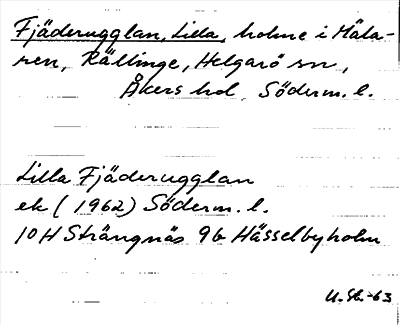 Fjäderugglan, Lilla, holme i Mäla-
ren, Rällinge, Helgarö sn,
Åkers hd, Söderm. l.
Lilla Fjäderugglan
ek (1962) Söderm. l.
10H Strängnäs 9b Hässelbyholm
U.Sh.-63